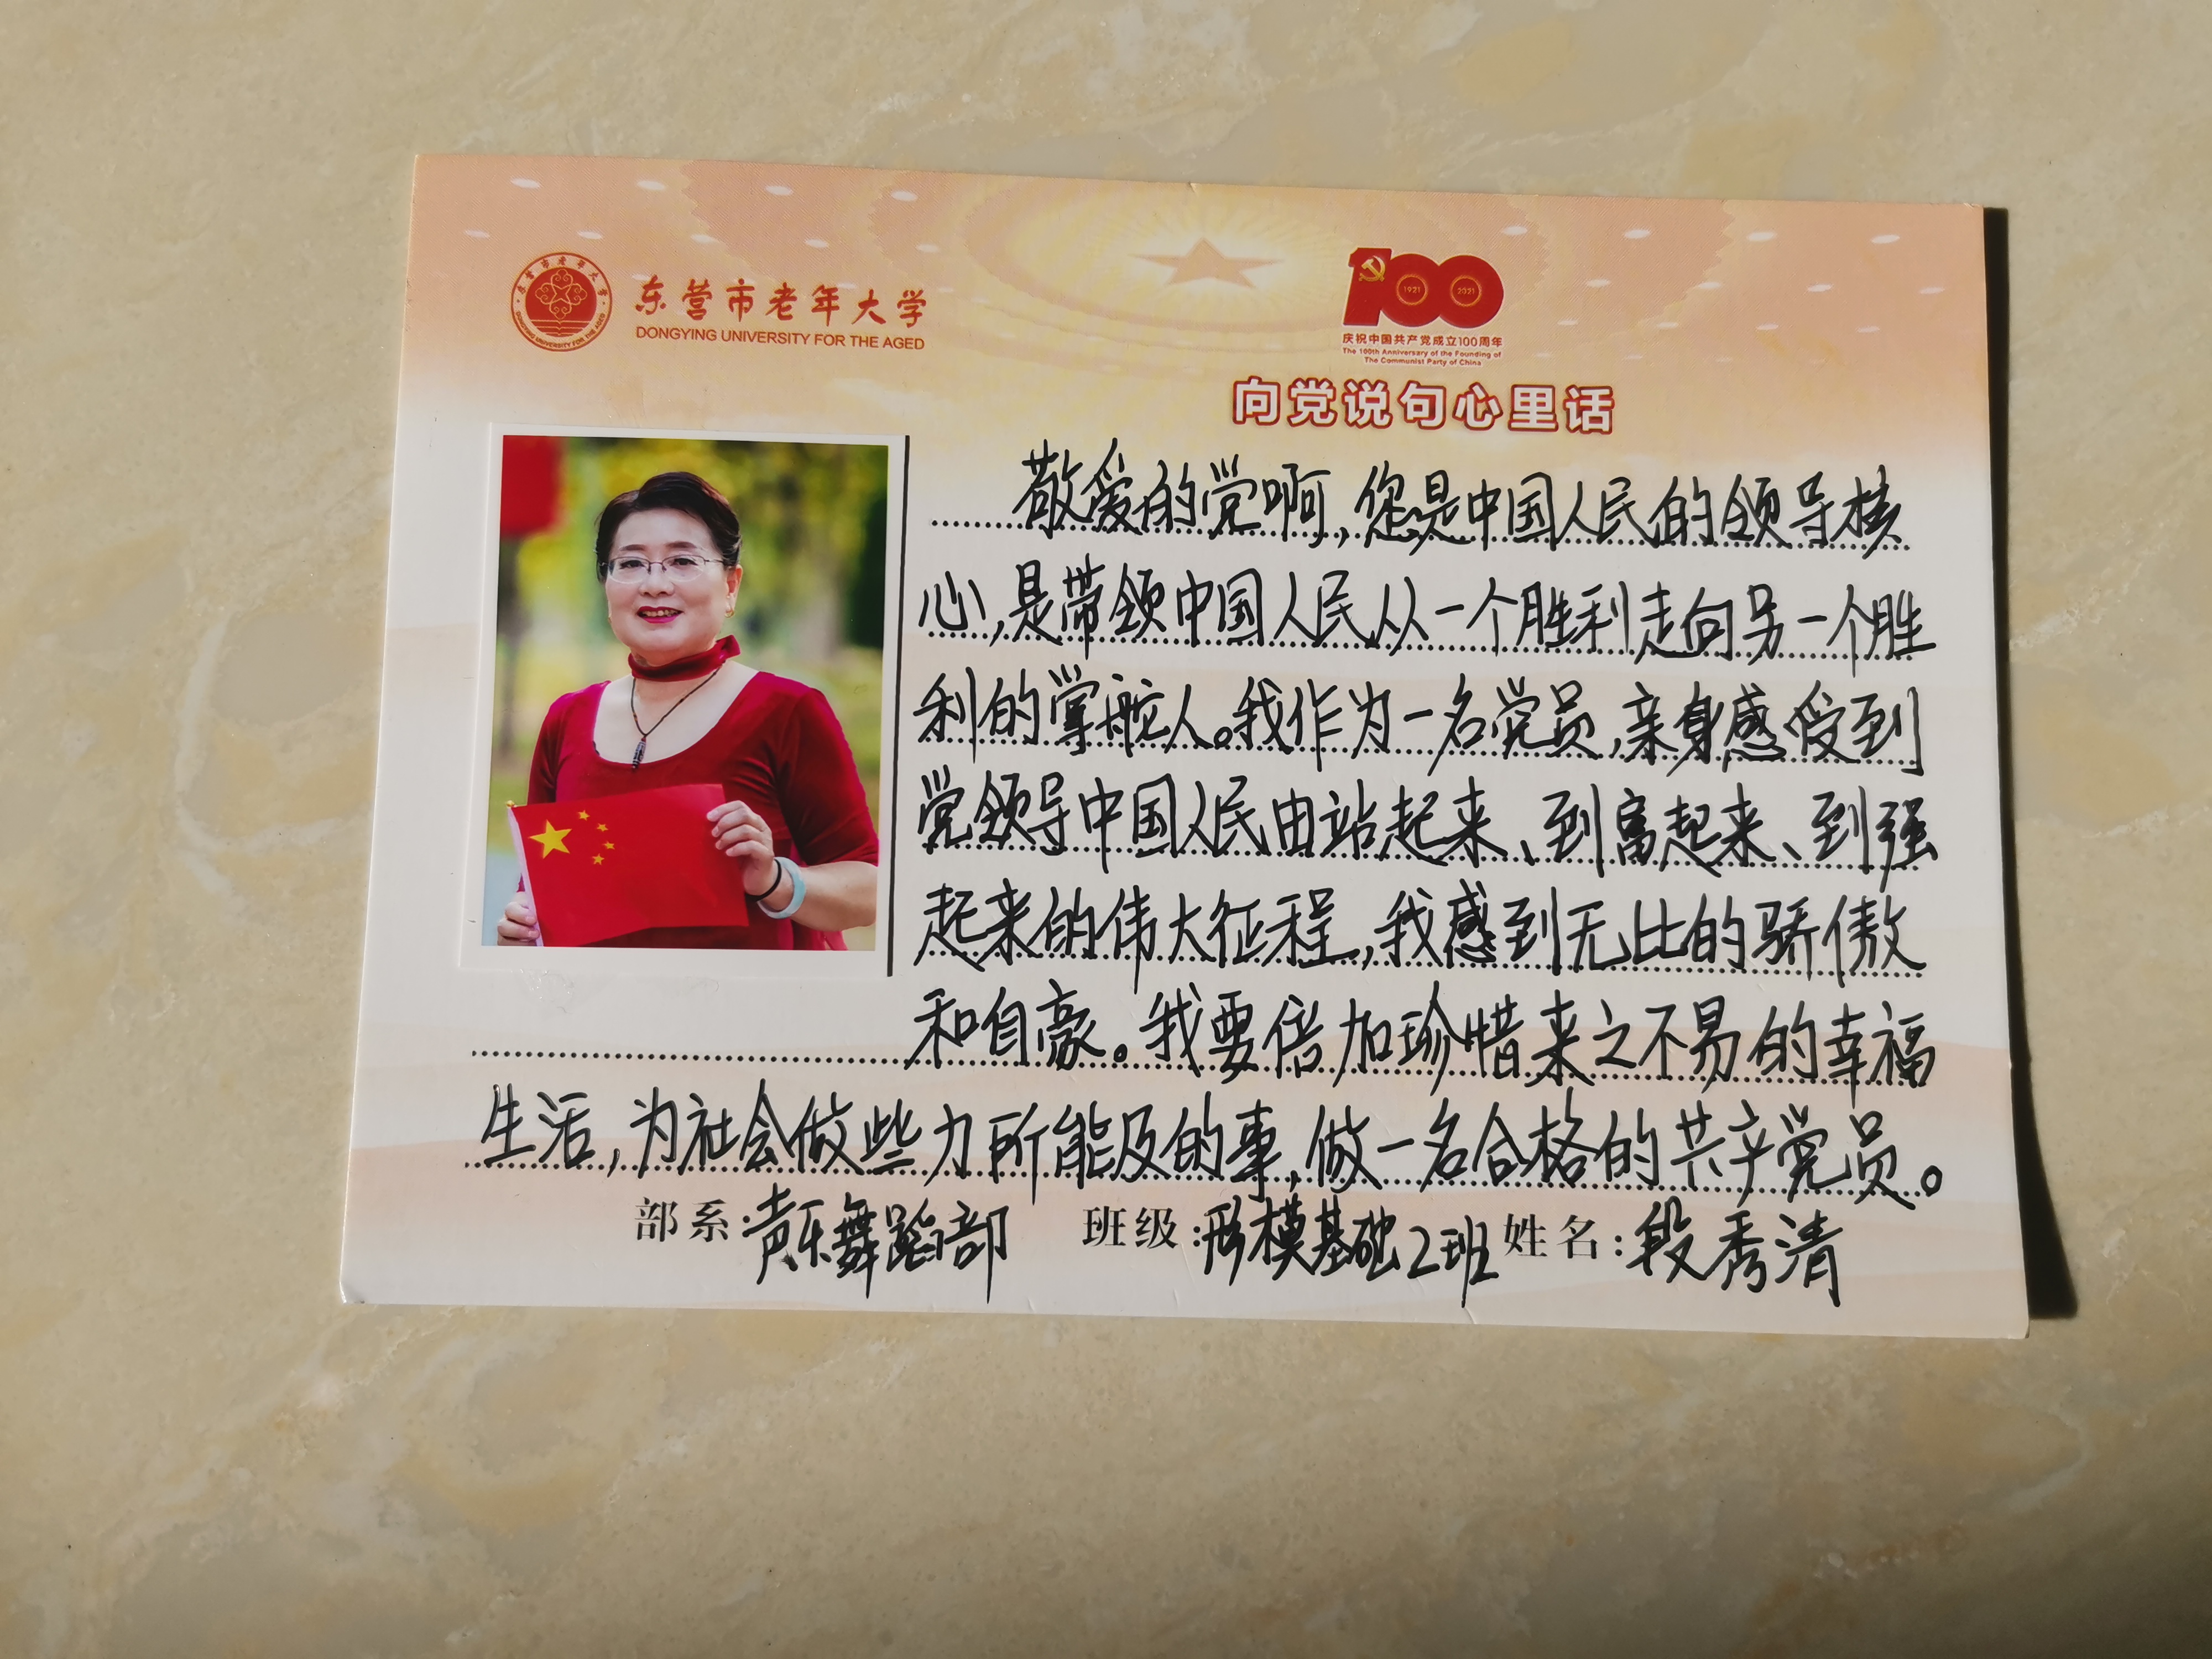 东营市老年大学
DONGYING UNIVERSITY FOR THE AGED
东营市老年大学
DONGYING UNIVERSITY FOR THE AGED
100
1921
2021
庆祝中国共产党成立100周年
The 100th Anniversary of the Founding of
The Communist Party of China
向党说句心里话
敬爱的党啊,您是中国人民的领导核
心,是带领中国人民从一个胜利走向另一个胜
利的掌舵人。我作为一名党员,亲身感受到
党领导中国人民由站起来、到富起来、到强
起来的伟大征程,我感到无比的骄傲
和自豪。我要倍加珍惜来之不易的幸福
生活,为社会做些力所能及的事,做一名合格的共产党员。
部系:声乐舞蹈部 班级:形模基础2班 姓名:段秀清